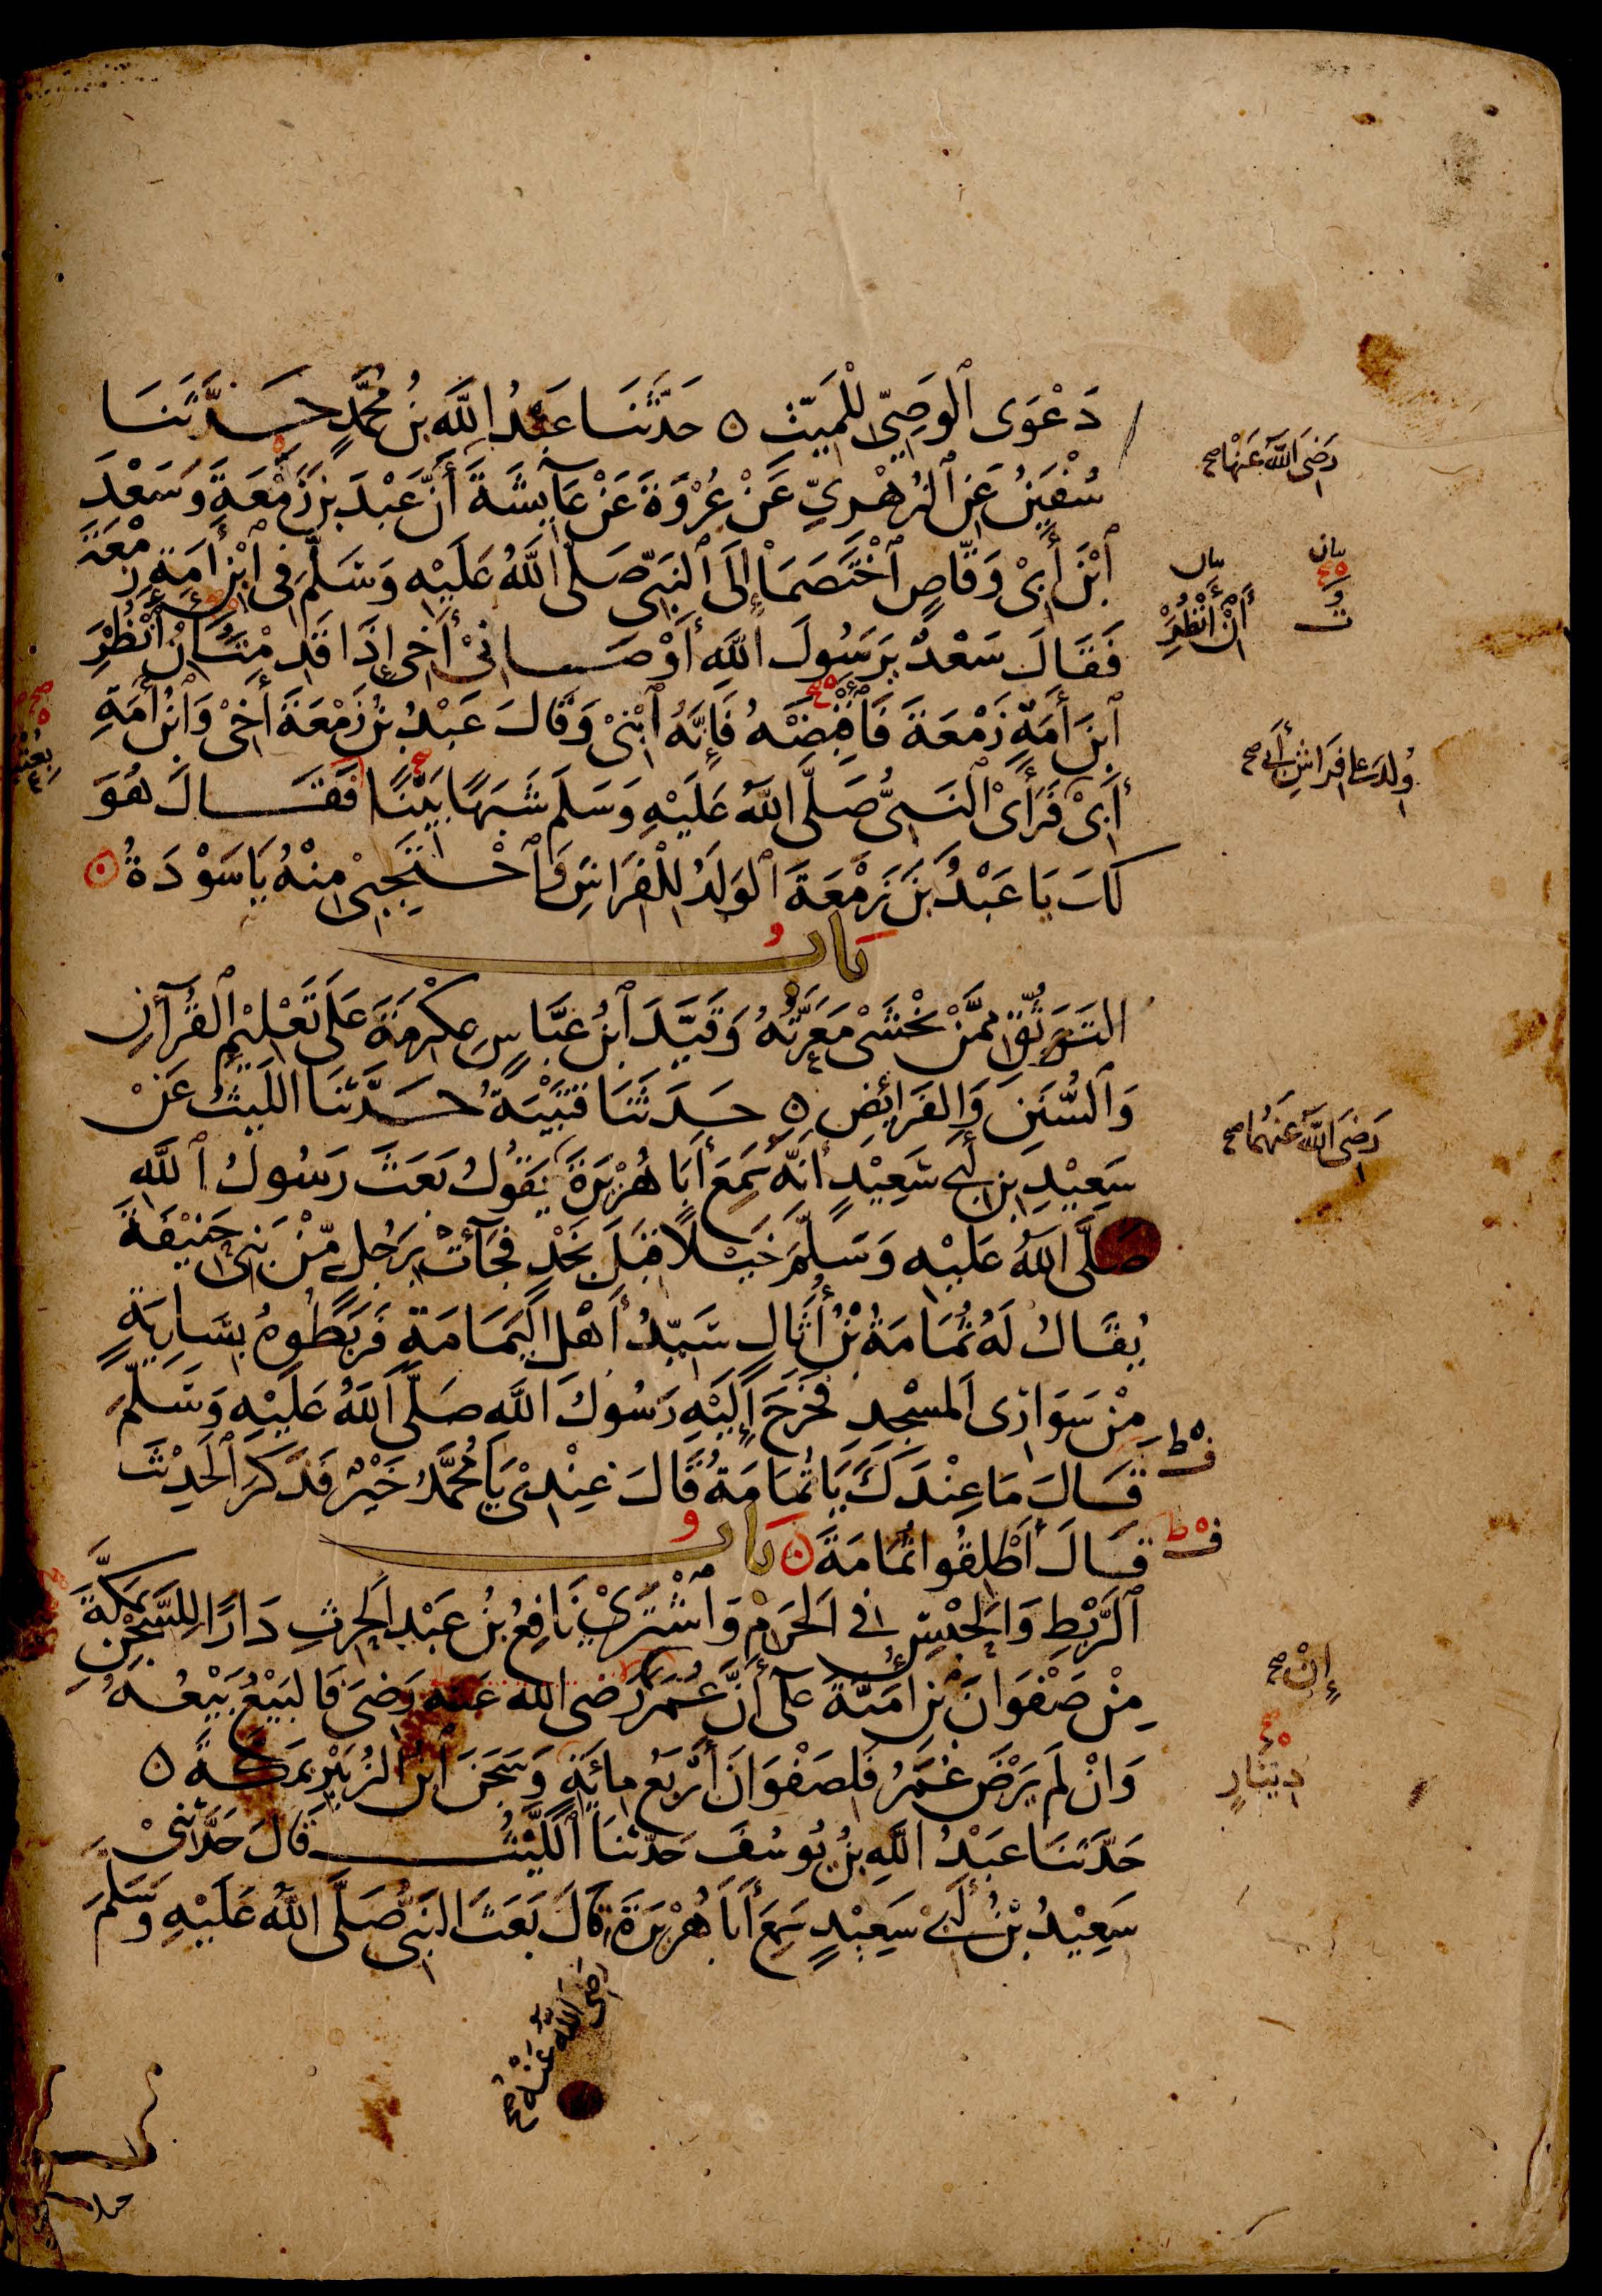 دَعْوَى ٱلوَصِيِّ لِلْمَيِّتِ ۵ حَدَّثَنَا عَبْدُ اللَّهِ بْنُ مُحَمَّدٍ حَدَّثَنَا
سُفْيٰنُ عَنِ ٱلزُّهْرِيِّ عَنْ عُرْوَةَ عَنْ عَآيِشَةَ أَنَّ عَبْدَ بْنَ زَمْعَةَ وَسَعْدَ
رَضِيَ اللَّهُ عَنْهَا صح
ٱبْنَ أَبِيْ وَقَّاصٍ ٱخْتَصَمَا إِلَى ٱلنَّبِيِّ صَلَّى اللَّهُ عَلَيْهِ وَسَلَّمَ فِي ٱبْنِ أَمَةِ زَمْعَةَ
فَقَالَ سَعْدٌ يٰرَسُولَ اللَّهِ أَوْصَانِيْ أَخِي إِذَا قَدِمْتُ أَنْ أَنْظُرَ
أَنْ أَنْظُرَ
ٱبْنَ أَمَةِ زَمْعَةَ فَأَقْبِضَهُ فَإِنَّهُ ٱبْنِيْ وَقَالَ عَبْدُ بْنُ زَمْعَةَ أَخِيْ وَٱبْنُ أَمَةِ
أَبِيْ فَرَأَىْ ٱلنَّبِيُّ صَلَّى اللَّهُ عَلَيْهِ وَسَلَّمَ شَبَهًا بَيِّنًا فَقَالَ هُوَ
وُلِدَ عَلَى فِرَاشِ أَبِي صح
لَكَ يَا عَبْدُ بْنَ زَمْعَةَ ٱلوَلَدُ لِلْفِرَاشِ وَٱحْتَجِبِيْ مِنْهُ يَا سَوْدَةُ ۵
بَابُ
التَّوَثُّقِ مِمَّنْ تُخْشَىْ مَعَرَّتُهُ وَقَيَّدَ ٱبْنُ عَبَّاسٍ عِكْرِمَةَ عَلَى تَعْلِيْمِ ٱلقُرْآنِ
وَٱلسُّنَنِ وَالفَرَائِضِ ۵ حَدَثَنَا قُتَيْبَةُ حَدَّثَنَا اللَّيْثُ عَنْ
رَضِيَ اللَّهُ عَنْهُمَا صح
سَعِيْدِ بْنِ أَبِي سَعِيْدٍ أَنَّهُ سَمِعَ أَبَا هُرَيْرَةَ يَقُوْلُ بَعَثَ رَسُولُ ٱللَّهِ
صَلَّى اللَّهُ عَلَيْهِ وَسَلَّمَ خَيْلًا قِبَلَ نَجْدٍ فَجَآئَتْ بِرَجُلٍ مِّنْ بَنِيْ حَنِيْفَةَ
يُقَالُ لَهُ ثُمَامَةُ بْنُ أُثَالٍ سَيِّدُ أَهْلِ اليَمَامَةِ فَرَبَطُوهُ بِسَارِيَةٍ
مِنْ سَوَارِى المَسْجِدِ فَخَرَجَ إِلَيْهِ رَسُولُ اللَّهِ صَلَّى اللَّهُ عَلَيْهِ وَسَلَّمَ
قَالَ مَا عِنْدَكَ يَا ثُمَامَةُ قَالَ عِنْدِىْ يَا مُحَمَّدُ خَيْرٌ فَذَكَرَ ٱلحَدِيْثَ
قَالَ أَطْلِقُوا ثُمَامَةَ ۵ بَابُ
ٱلرَّبْطِ وَالحَبْسِ فِي الحَرَمِ وَٱشْتَرَىْ نَافِعُ بْنُ عَبْدِ الحٰرِثِ دَارًا لِلسِّجْنِ بِمَكَّةَ
مِنْ صَفْوَانَ بْنِ أُمَيَّةَ عَلَى أَنَّ عُمَرَ رَضِي الله عَنْه رَضِيَ فَالبَيْعُ بَيْعُهُ
إِنْ صح
وَإِنْ لَمْ يَرْضَ عُمَرُ فَلِصَفْوَانَ أَرْبَعُ مِائَةٍ وَسَجَنَ ٱبْنُ الزُّبَيْرِ بِمَكَّةَ ۵
دِيْنَارٍ
حَدَّثَنَا عَبْدُ اللَّهِ بْنُ يُوسُفَ حَدَّثَنَا اللَّيْثُ قَالَ حَدَّثَنِيْ
سَعِيْدُ بْنُ أَبِيْ سَعِيْدٍ سَمِعَ أَبَا هُرَيْرَةَ قَالَ بَعَثَ النَّبِيُّ صَلَّى اللَّهُ عَلَيْهِ وَسَلَّمَ
رَضِيَ اللَّهُ عَنْهُ صح